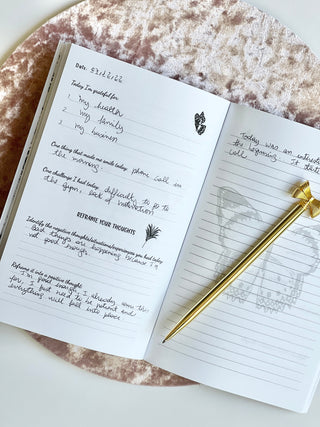 Date:
Today I'm grateful for:
1 my health
2 my family
3 my business
One thing that made me smile today: phone call in
the morning.
One challenge I had today: difficulty to go to
the gym, lack of motivation
REFRAME YOUR THOUGHTS
Identify the negative thoughts/situations/experiences you had today
Bad things are happening because I'm
not good enough.
Reframe it into a positive thought:
I'm good enough, I already
for, I just need to be patient and
everything will fall into place.
Today was an
the beginning. It
call